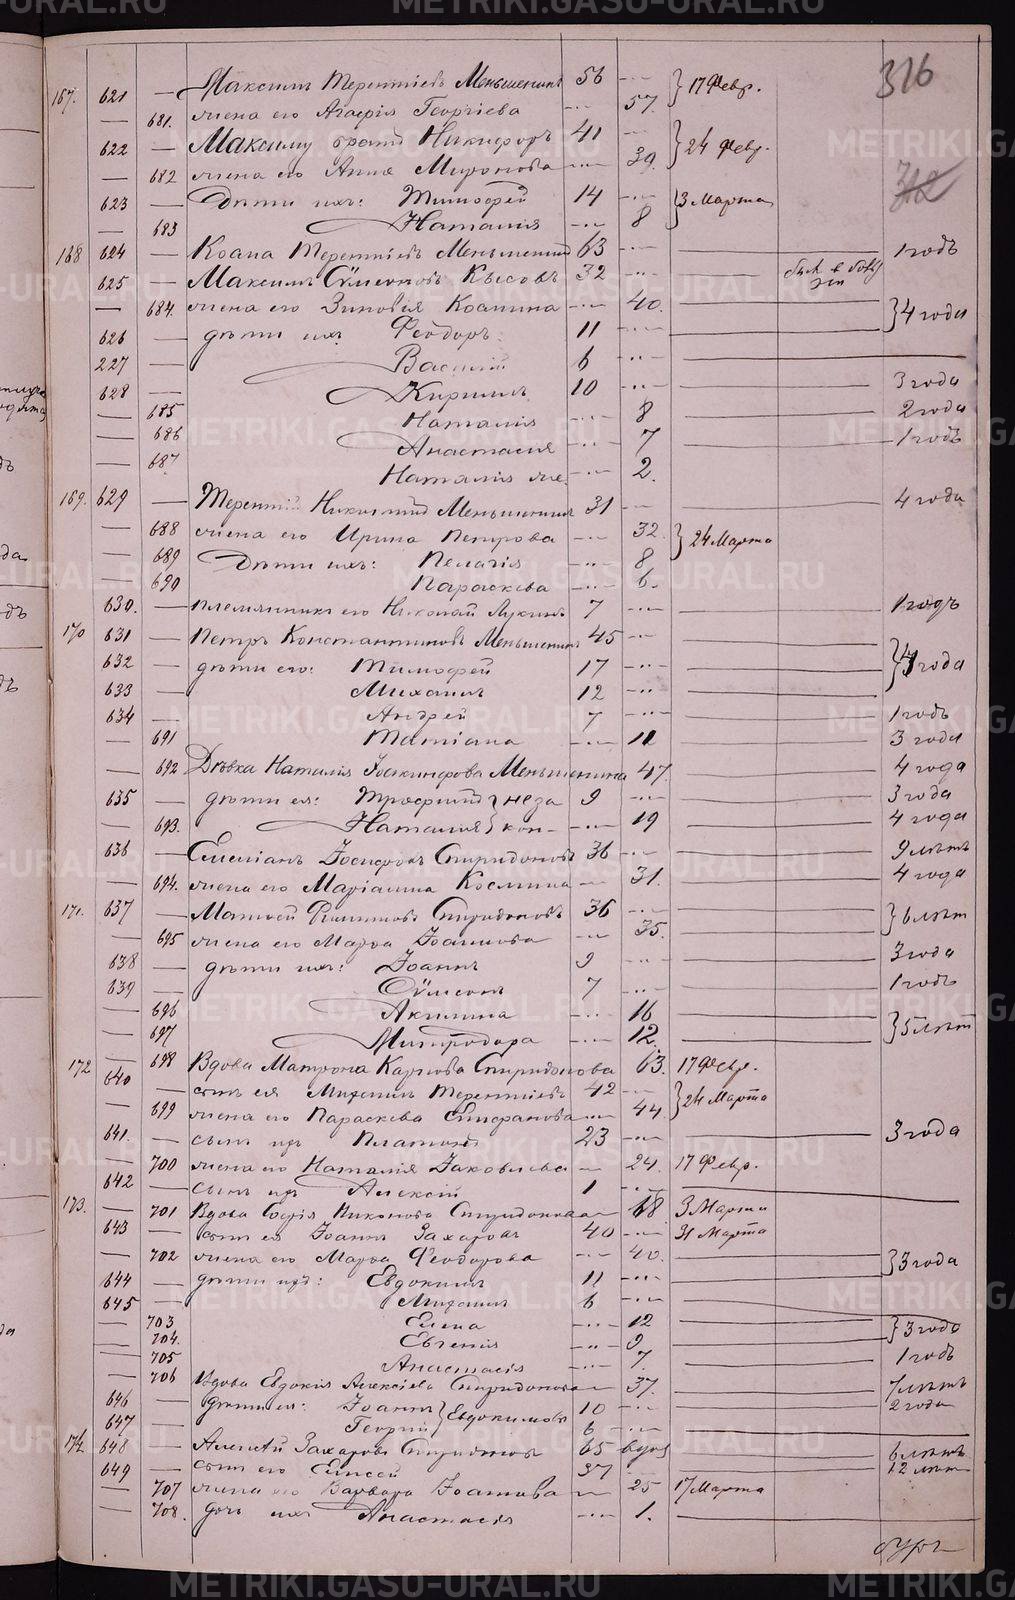 316
312
167. 621 — Максимъ Терентіевъ Меньшенинъ 56 17 Февр.
— 681. жена его Агафія Георгіева 57.
622 — Максиму братъ Никифоръ 41 24 Февр.
— 682 жена его Анна Миронова 39.
623 — Дѣти ихъ: Тимофей 14 3 Марта
— 683 Наталія 8
168 624 — Козма Терентіевъ Меньшенинъ 63 1 годъ
625 — Максимъ Сѵмеоновъ 32
— 684. жена его Зиновія Козмина 40. 4 года
626 — дѣти ихъ: Феодоръ 11
227 — Василій 6
628 — Кириллъ 10 3 года
— 685 Наталія 8 2 года
— 686 Анастасія 7 1 годъ
— 687 Наталія 2.
169. 629 — Терентій Меньшенинъ 31 4 года
— 688 жена его Ирина Петрова 32. 24 Марта
— 689 Дѣти ихъ: Пелагія 8
— 690 Параскева 6.
630. — племянникъ его Николай Лукинъ 7 1 годъ
170 631 — Петръ Константиновъ Меньшенинъ 45
632 — дѣти его: Тимофей 17 4 года
633 — Михаилъ 12
634 — Андрей 7 1 годъ
— 691 Татіана 11 3 года
— 692 Дѣвка Наталія Меньшенина 47. 4 года
635 — дѣти ея: Трофимъ неза 9 3 года
— 693. Наталія кон- 19 4 года
636 — Емеліанъ Іосифовъ Спиридоновъ 36 9 лѣтъ
— 694. жена его Маріанна Козмина 31. 4 года
171. 637 — Матвей Филиповъ Спиридоновъ 36 6 лѣтъ
— 695 жена его Марѳа Іоаннова 35.
638 — дѣти ихъ: Іоаннъ 9 3 года
639 — Сѵмеонъ 7 1 годъ
— 696 Акилина 16 5 лѣтъ
— 697 Митродора 12.
172 — 698 Вдова Матрона Карпова Спиридонова 63. 17 Февр.
640 — сынъ ея Михаилъ Терентіевъ 42 24 Марта
— 699 жена его Параскева Епифанова 44.
641. — сынъ ихъ Платонъ 23 3 года
— 700 жена его Наталія Іаковлева 24. 17 Февр.
642 — сынъ ихъ Алексій 1
173. — 701 Вдова Софія Никонова Спиридонова 68 3 Марта
643 — сынъ ея Іоаннъ Захаровъ 40 31 Марта
— 702 жена его Марѳа Феодорова 40. 3 года
644 — дѣти ихъ: Евдокимъ 11
645 — Михаилъ 6
— 703 Елена 12 3 года
— 704. Евгенія 9
— 705 Анастасія 7. 1 годъ
— 706 Вдова Евдокія Алексіева Спиридонова 37. 7 лѣтъ
646 — дѣти ея: Іоаннъ Евдокимовы 10 2 года
647 — Георгій 6
174. 648 — Алексѣй Захаровъ Спиридоновъ 65 вдов 6 лѣтъ
649 — сынъ его Елисей 37 12 лѣтъ
— 707 жена его Варвара Іоаннова 25 17 Марта
— 708. дочь ихъ Анастасія 1.